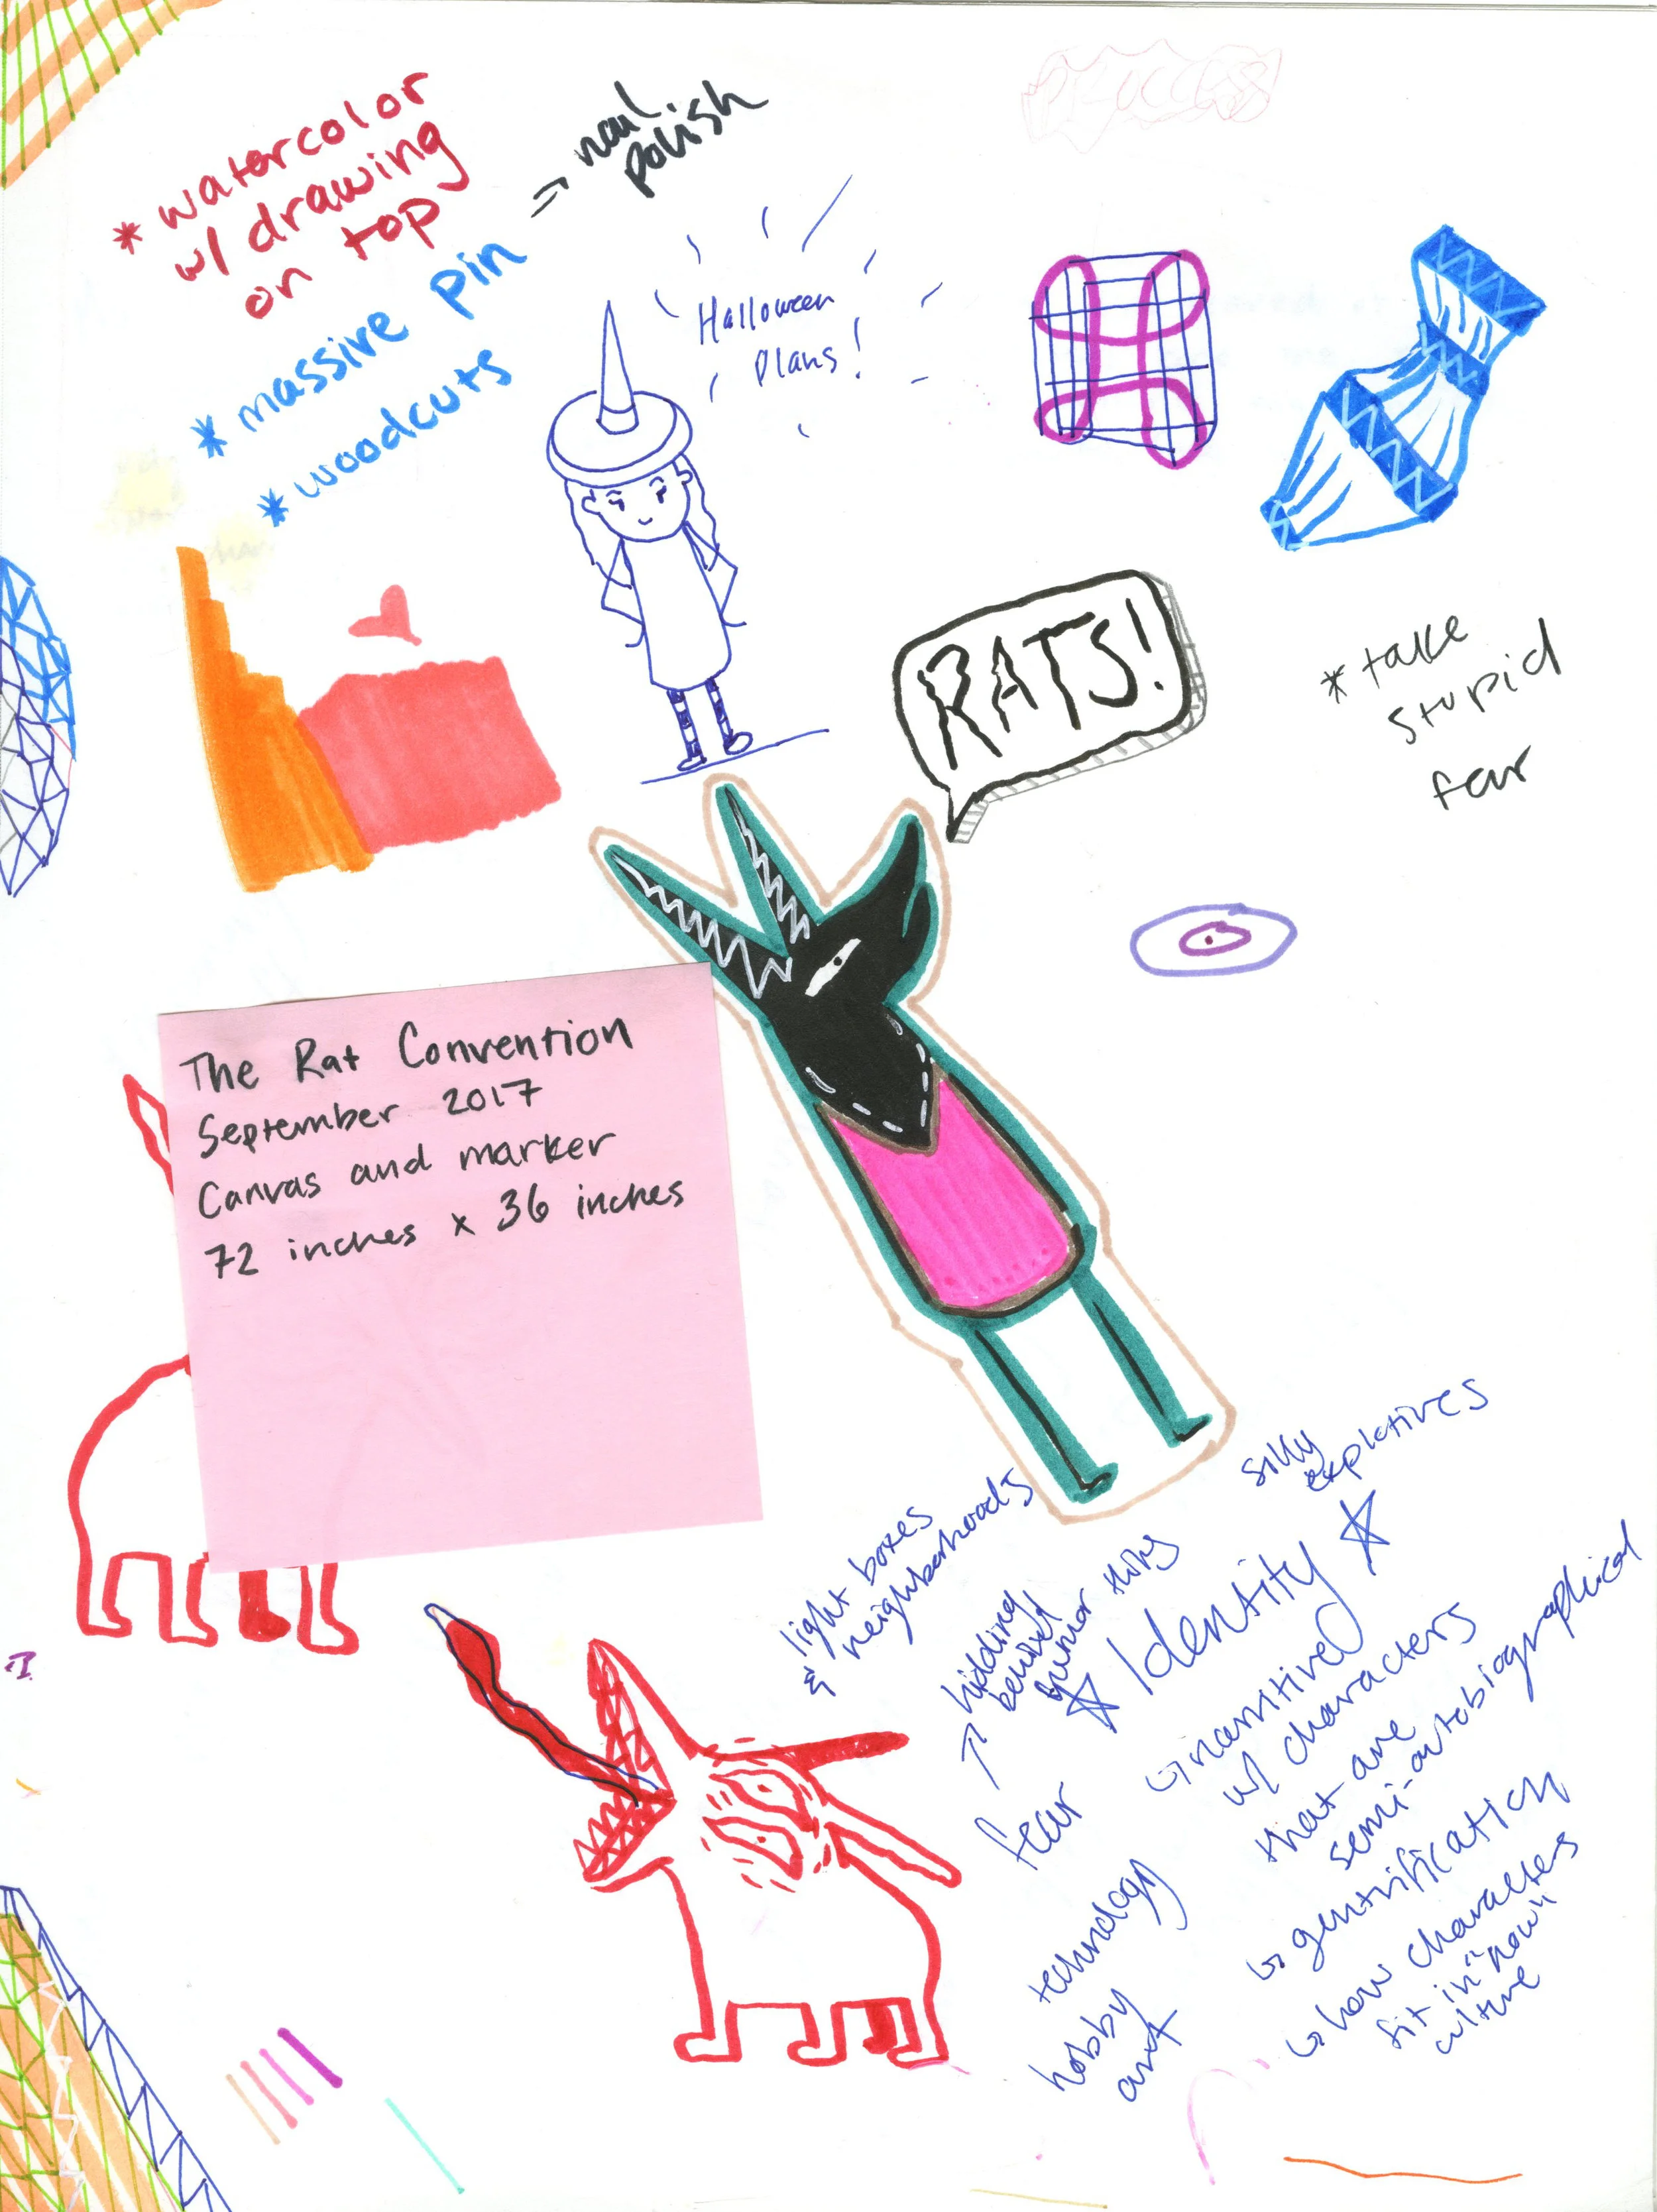 * watercolor
w/ drawing
on top
* massive pin → nail
polish
* woodcuts
process
Halloween
Plans!
RATS!
* take
stupid
fear
The Rat Convention
September 2017
Canvas and marker
72 inches x 36 inches
silly
explatives
light boxes
& neighborhoods
hidding
behind
humor thing
☆ Identity ☆
fear
↳ narritive
w/ characters
that are
semi-autobiographical
↳ gentrification
↳ how characters
fit in "now"
culture
technology
hobby
art